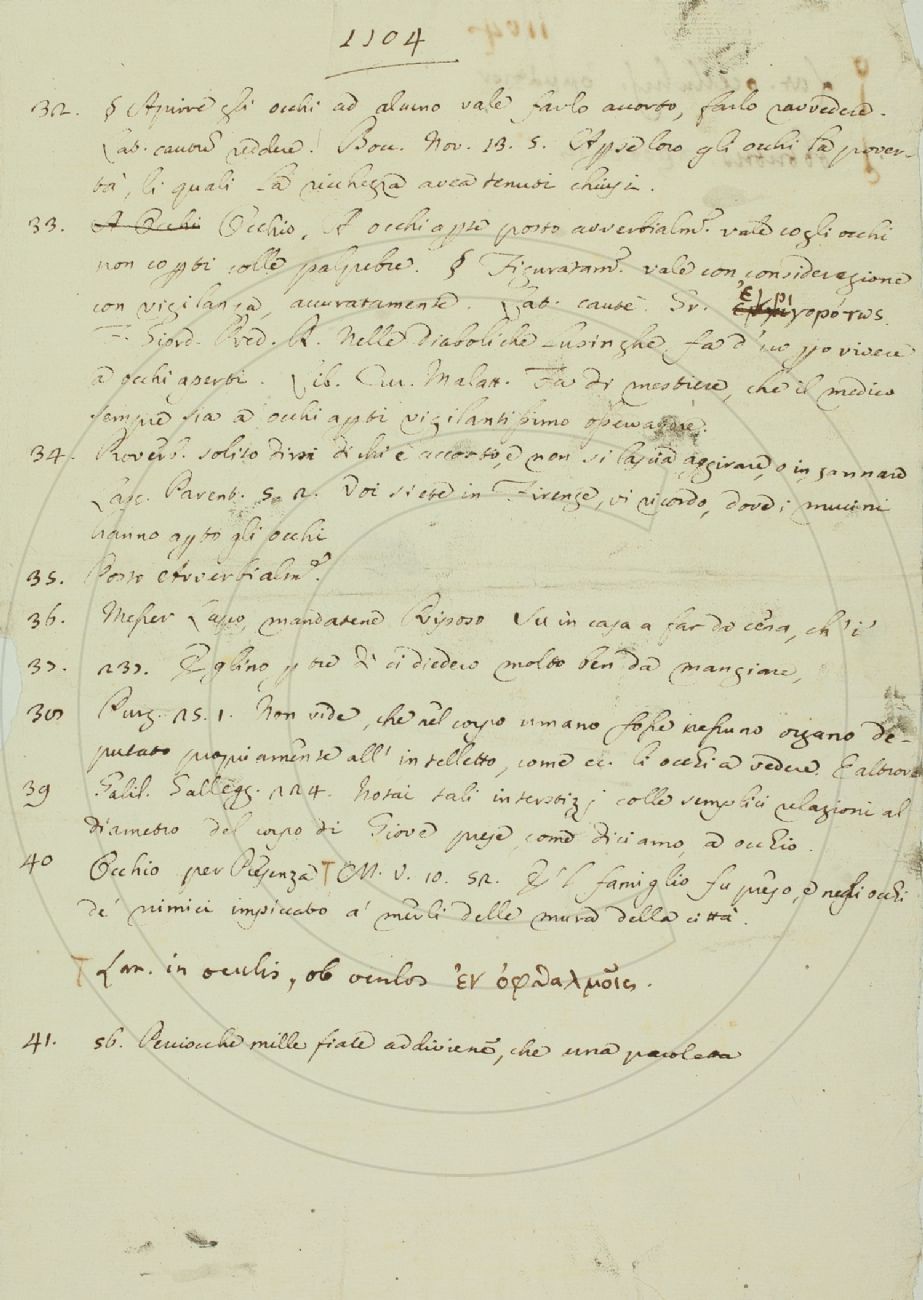 1104
32. § Aprire gli occhi ad alcuno vale farlo accorto, farlo ravvedere.
Lat. cautum reddere. Bocc. Nov. 13. 5. Aperse loro gli occhi la pover-
tà, li quali la ricchezza avea tenuti chiusi.
33. A Occhi Occhio, A occhi aperti posto avverbialmte. vale cogli occhi
non coperti colle palpebre. § Figuratamte. vale con considerazione
con vigilanza, accuratamente. Lat. caute. Gr. ἐγρηγορότως.
F. Giord. Pred. R. Nelle diaboliche lusinghe fa d'uopo vivere
a occhi aperti. Lib. Cur. Malatt. Fa di mestiere, che il medico
sempre sia a occhi aperti vigilantissimo operatore.
34. Proverb. solito dirsi di chi è accorto, e non si lascia aggirare, o ingannare
Lasc. Parent. 5. 2. Voi siete in Firenze, vi ricordo, dove i mucini
hanno aperto gli occhi
35. Posto Avverbialmte.
36. Messer Lapo, mandatene Riposo su in casa a far da cena, ch'i'
37. 237. Eglino, per tre dì ci diedero molto ben da mangiare,
38 Purg. 25. 1. Non vide, che nel corpo umano fosse nessuno organo de-
putato propriamente all'intelletto, come ec. li occhi a vedere. E altrove
39 Galil. Gallegg. 224. Notai tali interstizj colle semplici relazioni al
diametro del corpo di Giove prese, come diciamo, a occhio.
40 Occhio per Presenza T M. V. 10. 52. E 'l famiglio fu preso, e negli occhi
de' nimici impiccato a' merli delle mura della città.
T Lat. in oculis, ob oculos ἐν ὀφθαλμοῖς.
41. 56. Perciocchè mille fiate addiviene, che una paroletta